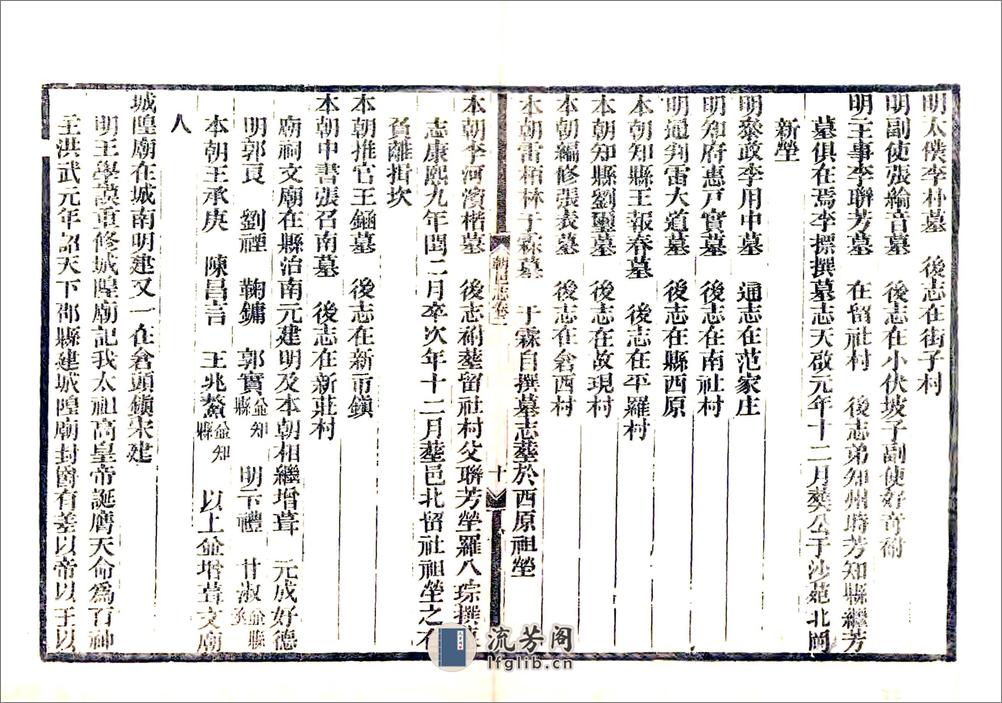 明太僕李朴墓　後志在街子村
明副使張綸音墓　後志在小伏坡子副使好奇祔
明主事李聯芳墓　在留社村　後志弟知州時芳知縣繼芳
墓俱在焉李摽撰墓志天啟元年十二月葬公于沙苑北岡
新塋
明參政李用中墓　通志在范家庄
明知府惠戸實墓　後志在南社村
明通判雷大道墓　後志在縣西原
本朝知縣王報春墓　後志在平羅村
本朝知縣劉璽墓　後志在故現村
本朝編修張表墓　後志在倉西村
本朝雷柏林于霖墓　于霖自撰墓志葬於西原祖塋
朝邑志卷二　十
本朝李河濱楷墓　後志祔葬留社村父聯芳塋羅八琮撰
志康熙九年閏二月卒次年十二月葬邑北留社祖塋之
負離揖坎
本朝推官王鉐墓　後志在新市鎮
本朝中書張召南墓　後志在新莊村
廟祠文廟在縣治南元建明及本朝相繼增葺　元成好德
明郭良　劉禋　鞠鏞　郭實並知縣　明于禮　甘淑並縣丞
本朝王承庚　陳昌言　王兆鰲並知縣　以上並增葺文廟
人
城隍廟在城南明建又一在倉頭鎮宋建
明王學謨重修城隍廟記我太祖高皇帝誕膺天命為百神
主洪武元年詔天下郡縣建城隍廟封爵有差以帝以王以
流芳阁
lfglib.cn